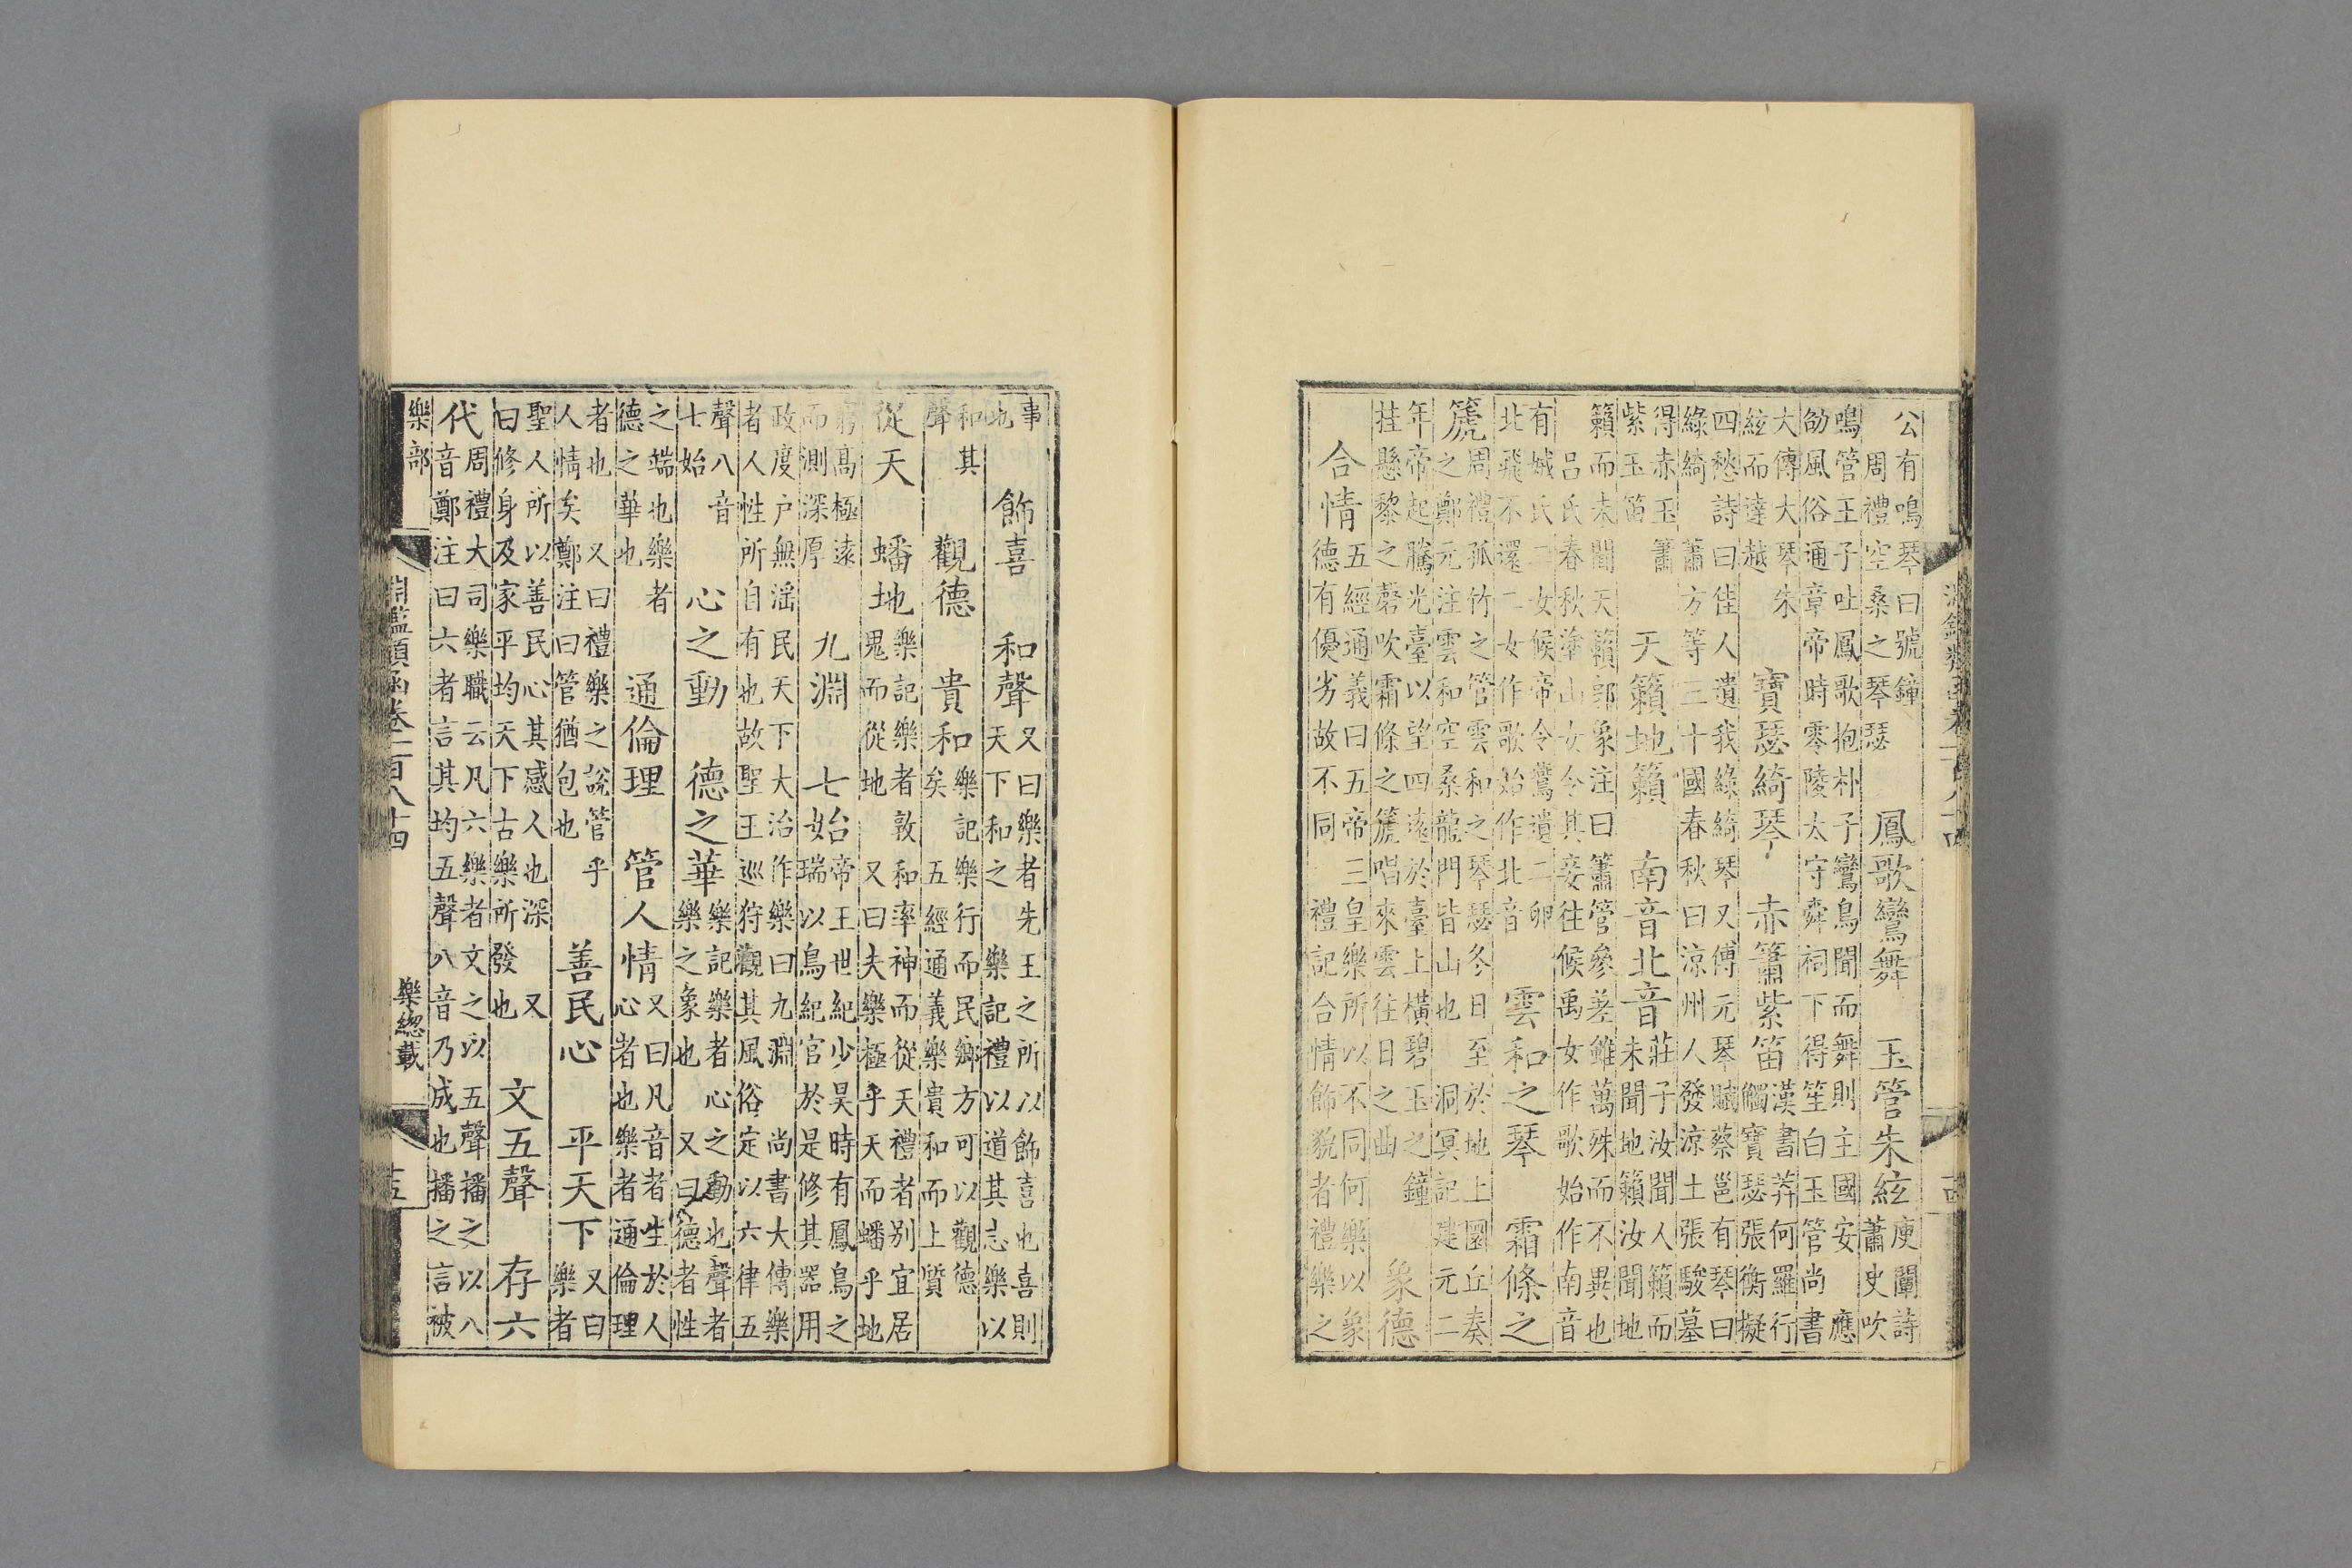 公有鳴琴曰號鐘
周禮空桑之琴瑟
鳳歌鸞舞
玉管朱絃
庾闡詩
蕭史吹
鳴管王子吐鳳歌抱朴子鸞鳥聞而舞則主國安
應劭風俗通章帝時零陵太守舜祠下得笙白玉管尚書
大傳大琴朱
絃而達越
寶瑟綺琴
赤簫紫笛
漢書莽何羅行
觸寶瑟張衡擬
四愁詩曰佳人遺我綠綺琴又傅元琴賦蔡邕有琴曰
綠綺
蕭方等三十國春秋曰涼州人發涼土張駿墓
得赤玉簫
紫玉笛
天籟地籟
南音北音
莊子汝聞人籟而
未聞地籟汝聞地
籟而未聞天籟郭象注曰簫管參差雖萬殊而不異也
呂氏春秋塗山女令其妾往候禹女作歌始作南音
有娀氏二女候帝令鸞遺二卵
北飛不還二女作歌始作北音
雲和之琴
霜條之
篪
周禮孤竹之管雲和之琴瑟冬日至於地上圜丘奏
之鄭元注雲和空桑龍門皆山也
洞冥記建元二
年帝起騰光臺以望四遠於臺上橫碧玉之鐘
挂懸黎之磬吹霜條之篪唱來雲往日之曲
象德
合情
五經通義曰五帝三皇樂所以不同何樂以象
德有優劣故不同
禮記合情飾貌者禮樂之
事
也
飾喜
和聲
又曰樂者先王之所以飾喜也喜則
天下和之
樂記禮以道其志樂以
和其
聲
觀德
貴和
樂記樂行而民鄉方可以觀德
矣
五經通義樂貴和而上質
從天
蟠地
樂記樂者敦和率神而從天禮者别宜居
鬼而從地
又曰夫樂極乎天而蟠乎地
窮高極遠
而測深厚
九淵
七始
帝王世紀少昊時有鳳鳥之
瑞以鳥紀官於是修其器用
政度户無滛民天下大治作樂曰九淵
尚書大傳樂
者人性所自有也故聖王巡狩觀其風俗定以六律五
聲八音
七始
心之動
德之華
樂記樂者心之動也聲者
樂之象也
又曰德者性
之端也樂者
德之華也
通倫理
管人情
又曰凡音者生於人
心者也樂者通倫理
者也
又曰禮樂之說管乎
人情矣
鄭注曰管猶包也
善民心
平天下
又曰
樂者
聖人所以善民心其感人也深
又
曰修身及家平均天下古樂所發也
文五聲
存六
代
周禮大司樂職云凡六樂者文之以五聲播之以八
音鄭注曰六者言其均五聲八音乃成也播之言被
樂部
淵鑑類函卷一百八十四
樂總載
十五